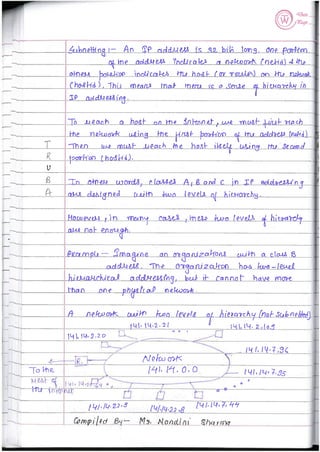 Subnetting :- An IP address is 32 bits long. One portion
of the address indicates a network (netid) & the
other portion indicates the host (or router) on the network
(hostid). This means that there is a sense of hierarchy in
IP addressing.
To reach a host on the Internet, we must first reach
the network using the first portion of the address (netid)
Then we must reach the host itself using the second
portion (hostid).
In other words, classes A, B and C in IP addressing
are designed with two levels of hierarchy.
However, in many cases, these two levels of hierarchy
are not enough.
Example :- Imagine an organization with a class B
address. The organization has two-level
hierarchical addressing, but it cannot have more
than one physical network
A network with two levels of hierarchy (not subnetted)
141.14.2.21
141.14.2.105
141.14.2.20
141.14.7.96
Network
141.14.0.0
R
To the
rest of
the Internet
141.14.7.95
141.14.22.9
141.14.22.8
141.14.7.44
Compiled By :- Ms. Nandini Sharma
T
R
U
B
A